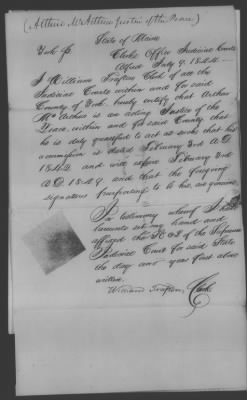 (Arthur McArthur Justice of the Peace)
State of Maine
York ss.
Clerks Office Judicial Courts
Alfred July 9. 1844
I William Trafton Clerk of all the
Judicial Courts within and for said
County of York, hereby certify that Arthur
McArthur is an acting Justice of the
Peace within and for said County that
he is duly qualified to act as such that his
commission is dated February 3rd A.D
1842 and will expire February 3rd
A.D. 1849 and that the foregoing
signature purporting to be his, is genuine
In testimony whereof I
hereunto set my hand and
affixed the Seal of the Supreme
Judicial Court for said State
the day and year first above
written.
William Trafton, Clerk